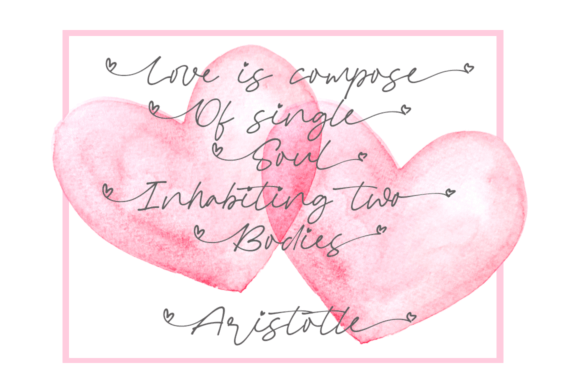 Love is compose
Of single
Soul
Inhabiting two
Bodies
Aristotle